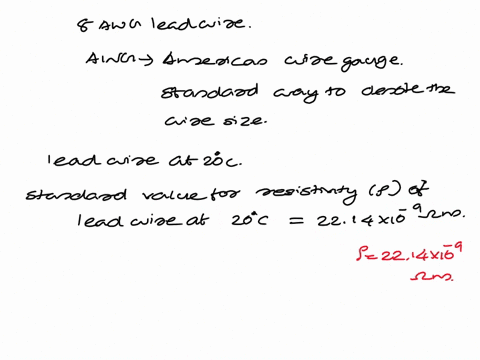 8 AWG lead wire.
AWG → American wire gauge.
standard way to denote the
wire size.
lead wire at 20°C.
standard value for resistivity (ρ) of
lead wire at 20°C = 22.14×10⁻⁹ Ωm.
ρ = 22.14×10⁻⁹
Ωm.